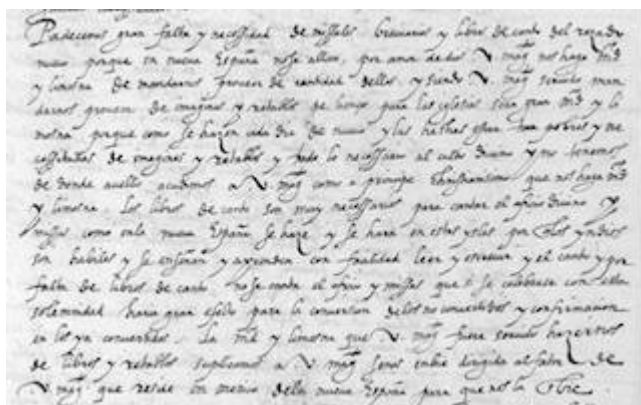 Padecemos gran falta y necessidad de missales breuiarios y libros de canto del rezado
nueuo porque en nueua España no se allan, por amor de dios V. magᵈ nos haga mᵈ
y limosna de mandarnos proueer de cantidad dellos, y siendo V. magᵈ seruido man
darnos proueer de imagines y retablos de lienço para las iglesias sera gran mᵈ y li
mosna porque como se hazen cada dia de nueuo y las hechas estan tan pobres y ne
cessitadas de imagines y retablos y todo lo necessario al culto diuino y no tenemos
de donde auello acudimos a V. magᵈ como a principe christianissimo que nos haga mᵈ
y limosna. Los libros de canto son muy necessarios para cantar el oficio diuino y
missas como en la nueua España se haze y se hara en estas yslas por q̃ los yndios
son habiles y se enseñan y aprenden con facilidad leer y escreuir y el canto y por
falta de libros de canto no se canta el oficio y missas que si se celebrase con esta
solemnidad haria gran efeto para la conuersion de los no conuertidos y confirmacion
en los ya conuertidos. La mᵈ y limosna que V. magᵈ fuere seruido hazernos
de libros y retablos suplicamos a V. magᵈ se nos enbie dirigida al fator de
V. magᵈ que reside en mexico de la nueua España para que nos la